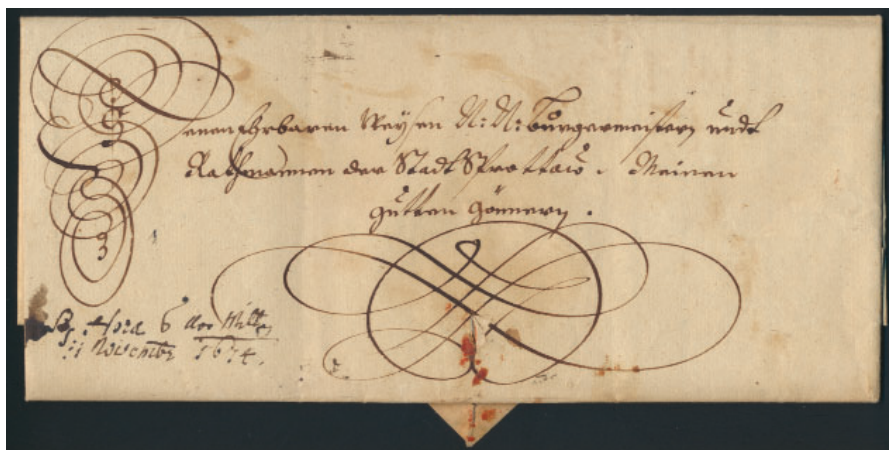 Denen Ehrbaren Weysen N: N: Bürgermeistern undt
Rathmannen der Stadt Sprottaw. Meinen
gutten Gönnern.
Hora 6
11 Novembr 1674.